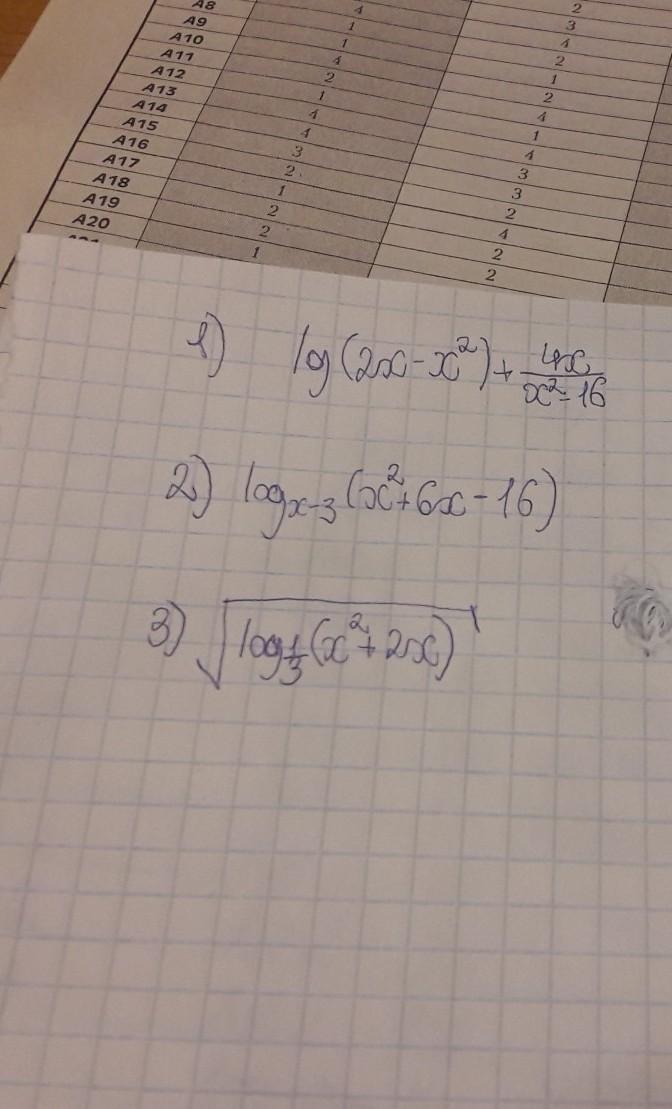 A8 4 2
A9 1 3
A10 1 4
A11 4 2
A12 2 1
A13 1 2
A14 4 4
A15 4 1
A16 3 4
A17 2 3
A18 1 3
A19 2 2
A20 2 4
1 2
2
1) lg(2x-x²)+\frac{4x}{x²-16}
2) log_{x-3}(x²+6x-16)
3) √(log_{\frac{1}{3}}(x²+2x))